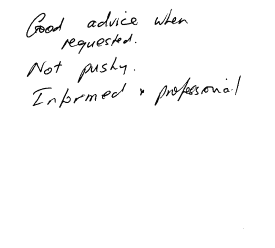 Good advice when
requested.
Not pushy.
Informed + professional